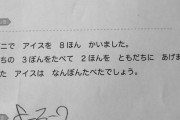 ニで アイスを 8ほん かいました。
ちの 3ぼんをたべて 2ほんを ともだちに あげま
た アイスは なんぼんたべたでしょう。